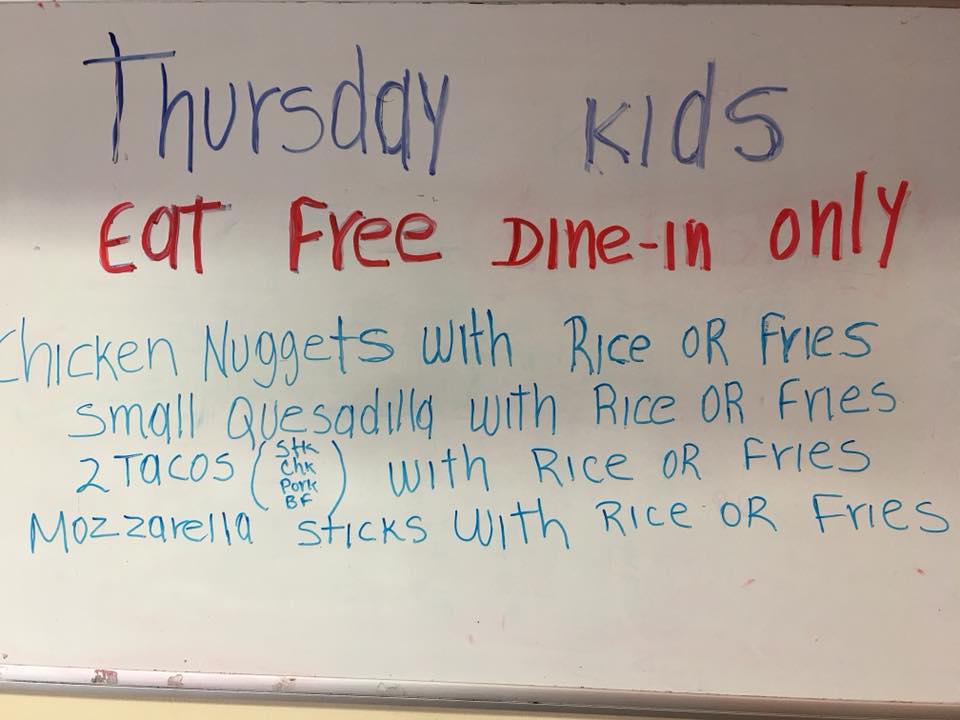 Thursday Kids
Eat Free Dine-in only
Chicken Nuggets with Rice OR Fries
Small Quesadilla with Rice OR Fries
2 Tacos (Stk Chk Pork BF) with Rice OR Fries
Mozzarella Sticks with Rice OR Fries